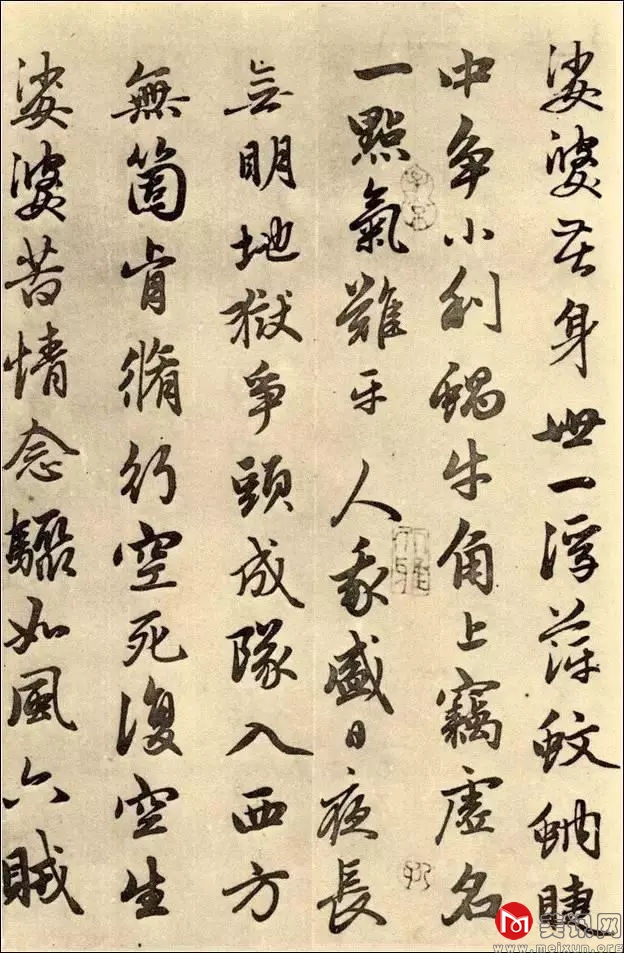 娑婆苦身世一浮萍蚊蚋睫
中争小利蝸牛角上竊虛名
一點氣難平人我盛日夜長
無明地獄爭頭成隊入西方
無箇肯脩行空死復空生
娑婆苦情念驟如風六賊
美讯网
www.meixun.org